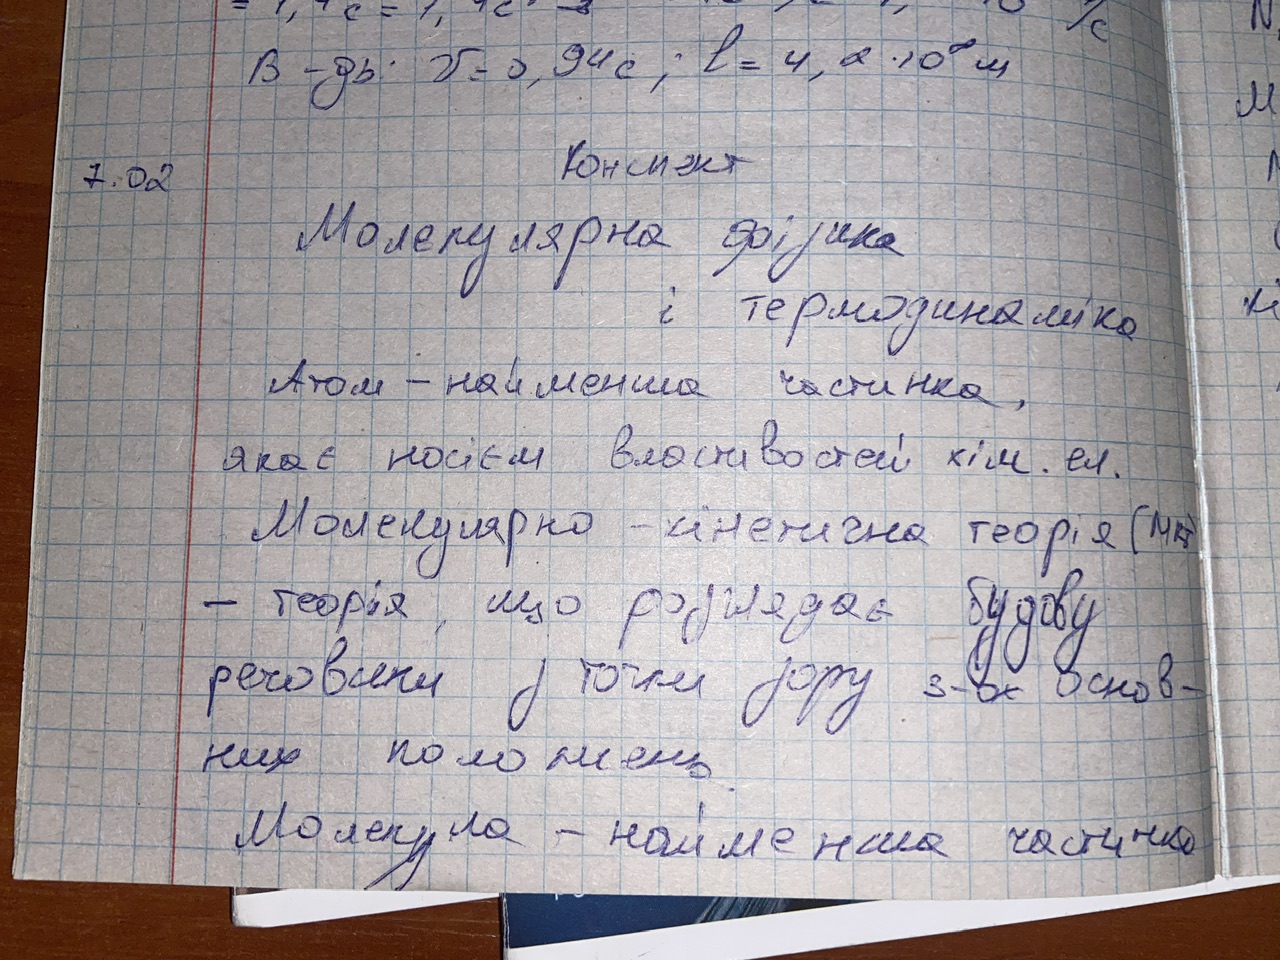 В-дь: τ=0,94с; l=4,2·10⁸м
7.02 Конспект
Молекулярна фізика
і термодинаміка
Атом – найменша частинка,
яка є носієм властивостей хім. ел.
Молекулярно-кінетична теорія (МКТ)
– теорія, що розглядає будову
речовини з точки зору 3-ох основ-
них положень.
Молекула – найменша частинка